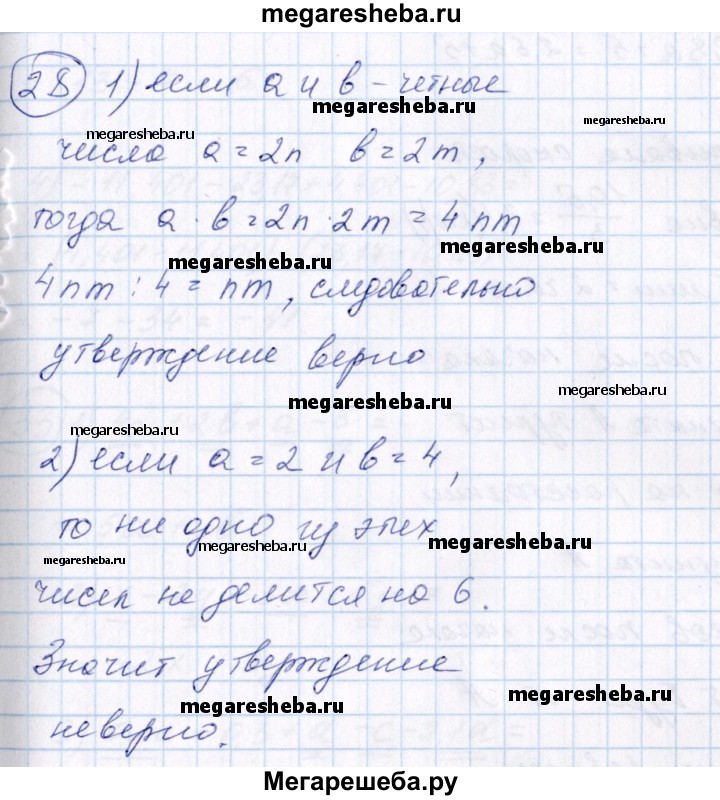 megaresheba.ru
28 1) если a и в – четные
megaresheba.ru
megaresheba.ru
megaresheba.ru
числа a = 2n в = 2m,
тогда a · в = 2n · 2m = 4nm
megaresheba.ru
megaresheba.ru
4nm : 4 = nm, следовательно
утверждение верно
megaresheba.ru
megaresheba.ru
megaresheba.ru
2) если a = 2 и в = 4,
то ни одно из этих
megaresheba.ru
megaresheba.ru
megaresheba.ru
чисел не делится на 6.
Значит утверждение
megaresheba.ru
megaresheba.ru
неверно.
Мегарешеба.ру